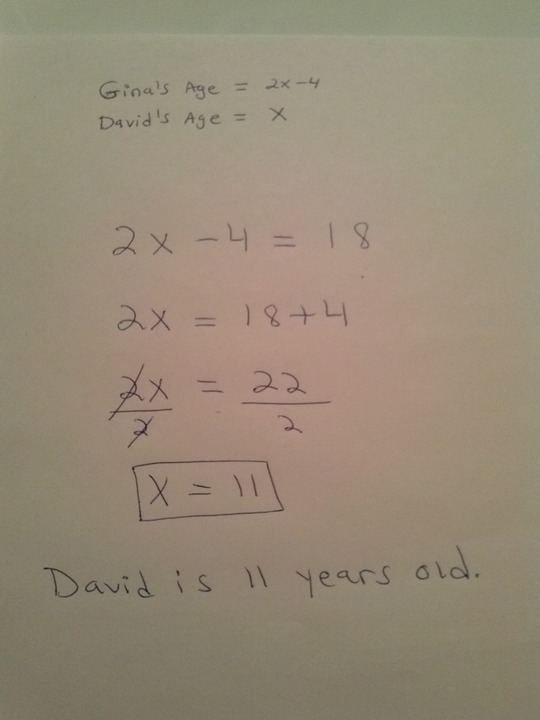 Gina's Age = 2x-4
David's Age = X
2x - 4 = 18
2x = 18+4
2x = 22
2 2
X = 11
David is 11 years old.